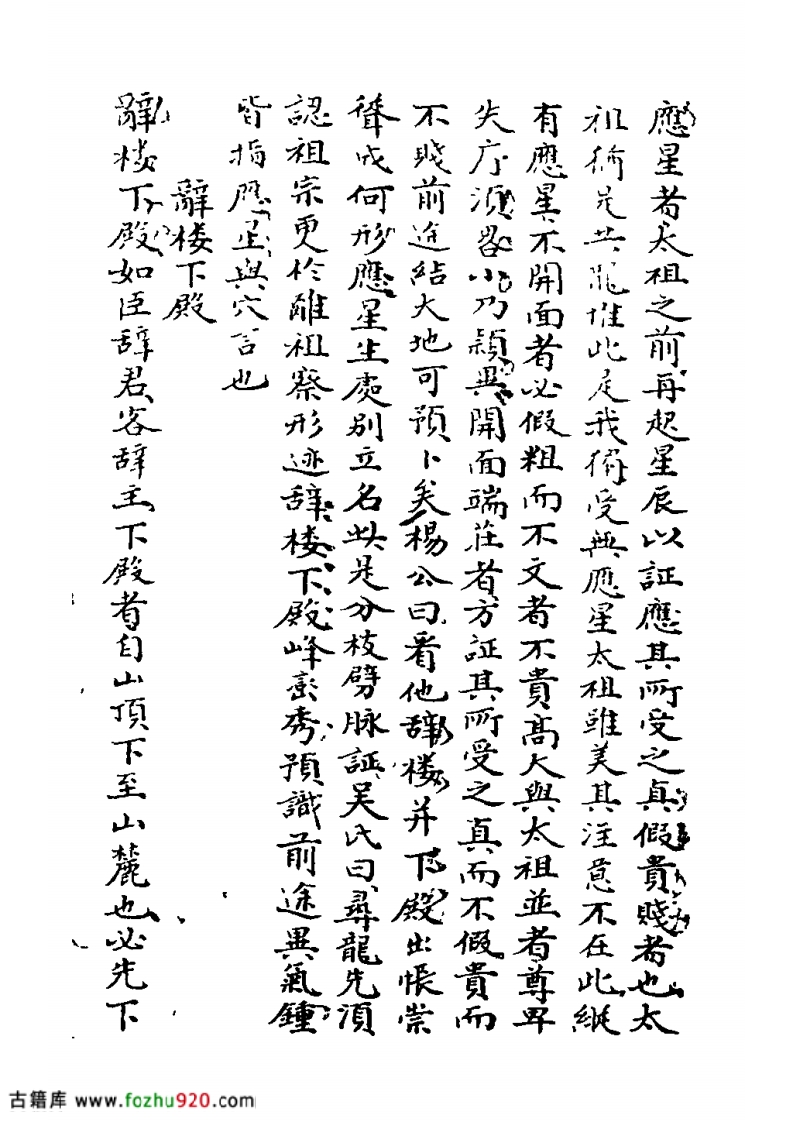 應星者太祖之前再起星辰以証應其所受之真假貴賤者也太
祖猶是共龍堆此是我獨受無應星太祖雖美其注意不在此縱
有應星不開面者必假粗而不文者不貴高大與太祖並者尊卑
失序須畧小乃穎異開面端莊者方証其所受之真而不假貴而
不賤前途結大地可預卜矣楊公曰看他辞楼并下殿出帳崇
聳成何形應星生處別立名此是分枝劈脉証吴氏曰尋龍先須
認祖宗更於離祖察形迹辞楼下殿峰彭秀預識前途異氣鍾
皆指應星與穴言也
辭楼下殿
辭楼下殿如臣辞君客辞主下殿者自山頂下至山麓也必先下
古籍库 www.fozhu920.com